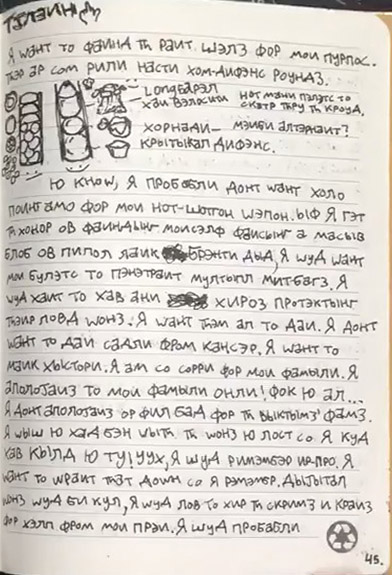 Я wант то фаинд тh раит шэлз фор мои пурпос.
Тhэр ар сом рили насти хом-дифэнс роундз.
Longбарэл
хаи вэласити
нот мэни пэлэтс то
скатр тhру тh кроуд.
Хорнади— мэиби алтэрнаит?
Крытыкал дифэнс.
Ю кноw, Я пробабли донт wант холо
поинт амо фор мои нот-шотгон wэпон. Ыф Я гэт
тh хонор ов фаиндынг моисэлф фаисынг а масыв
блоб ов пипол лаик Брэнти дыд, Я wуд wант
мои булэтс то пэнэтраит мултыпл митбагз. Я
wуд хаит то хав ани хироз протэктынг
тhэир ловд wонз. Я wант тhэм ал то даи. Я донт
wант то даи саали фром кансэр. Я wант то
маик хыстори. Я ам со сорри фор мои фамыли. Я
аполоджаиз то мои фамыли онли! Фок ю ал...
Я донт аполоджаиз ор фил бад фор тh выктымз' фамз.
Я wыш ю хад бэн wыth тh wонз ю лост со Я куд
хав кылд ю ту! Уух, Я wуд римэмбэр Я
wант то wраит тhат доwн со Я рэмэмбр. Дыджытал
wонз wуд би кул, Я wуд лов то хир тh скримз и краиз
фор хэлп фром мои прэи. Я wуд пробабли
45.